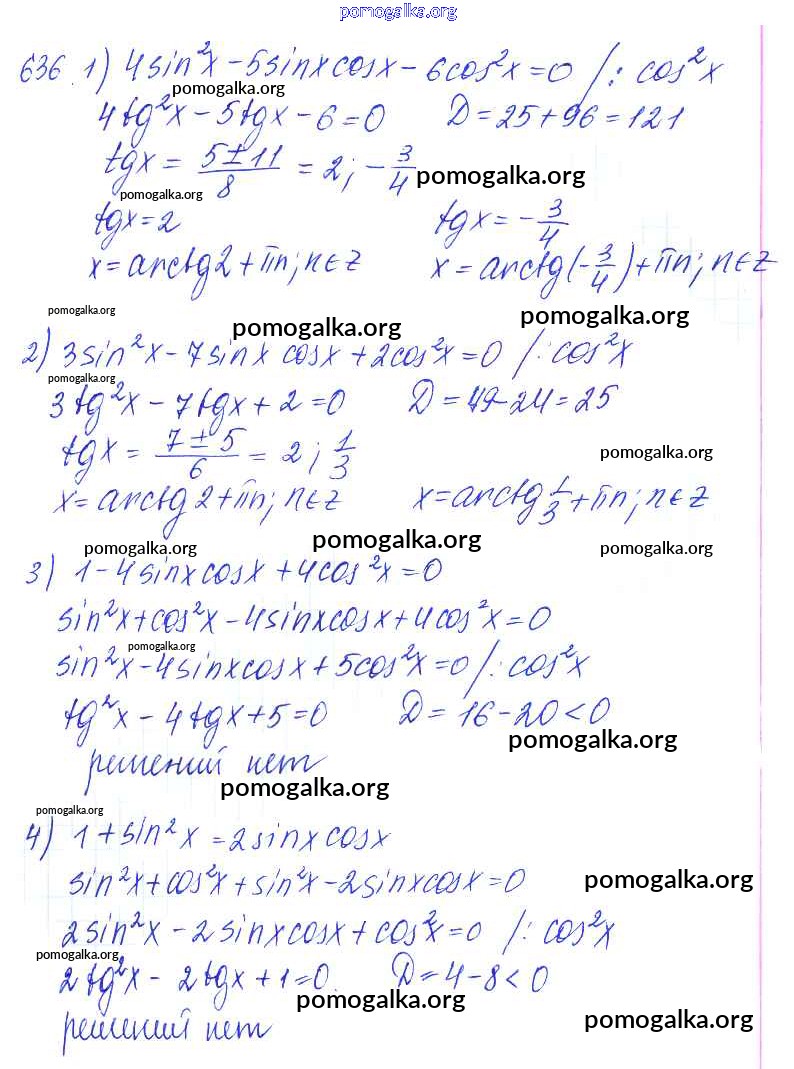 pomogalka.org
636. 1) 4sin²x - 5sinxcosx - 6cos²x = 0 /: cos²x
pomogalka.org
4tg²x - 5tgx - 6 = 0 D = 25 + 96 = 121
tgx = (5 ± 11)/8 = 2; -3/4 pomogalka.org
pomogalka.org
tgx = 2 tgx = -3/4
x = arctg2 + πn; n∈Z x = arctg(-3/4) + πn; n∈Z
pomogalka.org pomogalka.org pomogalka.org
2) 3sin²x - 7sinx cosx + 2cos²x = 0 /: cos²x
pomogalka.org
3tg²x - 7tgx + 2 = 0 D = 49 - 24 = 25
tgx = (7 ± 5)/6 = 2; 1/3 pomogalka.org
x = arctg 2 + πn; n∈Z x = arctg 1/3 + πn; n∈Z
pomogalka.org pomogalka.org pomogalka.org
3) 1 - 4sinxcosx + 4cos²x = 0
sin²x + cos²x - 4sinxcosx + 4cos²x = 0
pomogalka.org
sin²x - 4sinxcosx + 5cos²x = 0 /: cos²x
tg²x - 4tgx + 5 = 0 D = 16 - 20 < 0
pomogalka.org
решений нет
pomogalka.org
pomogalka.org
4) 1 + sin²x = 2sinxcosx
sin²x + cos²x + sin²x - 2sinxcosx = 0 pomogalka.org
2sin²x - 2sinxcosx + cos²x = 0 /: cos²x
pomogalka.org
2tg²x - 2tgx + 1 = 0 D = 4 - 8 < 0
pomogalka.org
решений нет pomogalka.org